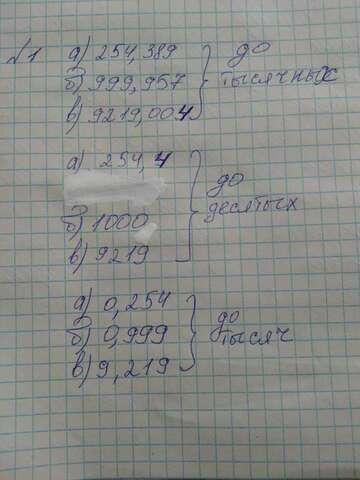 №1 а) 254,389
б) 999,957 до тысячных
в) 9219,004
а) 254,4
до
б) 1000 десятых
в) 9219
а) 0,254
до
б) 0,999 тысяч
в) 9,219